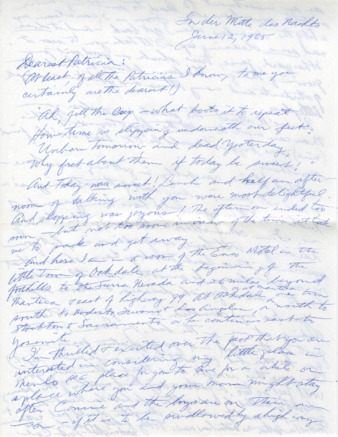 In der Mitte des Nachts
June 12, 1965
Dearest Patricia:
(At least of all the Patricias I know, to me you
certainly are the dearest!)
"Ah, fill the Cup – what boots it to repeat
How time is slipping underneath our feet.
Unborn tomorrow and dead Yesterday
Why fret about them if today be sweet!"
And today was sweet! Lunch and half an after-
noon of talking with you were most delightful
And shopping was joyous! The afternoon rushed too
soon – but not too
us to pack and get away
And here I am in a room of the Motel in the
little town of Oakdale, at the beginning of the
foothills to the Sierra Nevada and miles beyond
Manteca east of highway 99. At Oakdale we can
south to Modesto, Fresno Los Angeles, or north to
Stockton & Sacramento or to continue east to
Yosemite
I'm thrilled & excited over the fact that you are
interested in considering my little place in
Menlo as a place for you to live for a while or
a place where you and your mom might stay
after Connie and the boys are
For – if it is to be swallowed by a highway